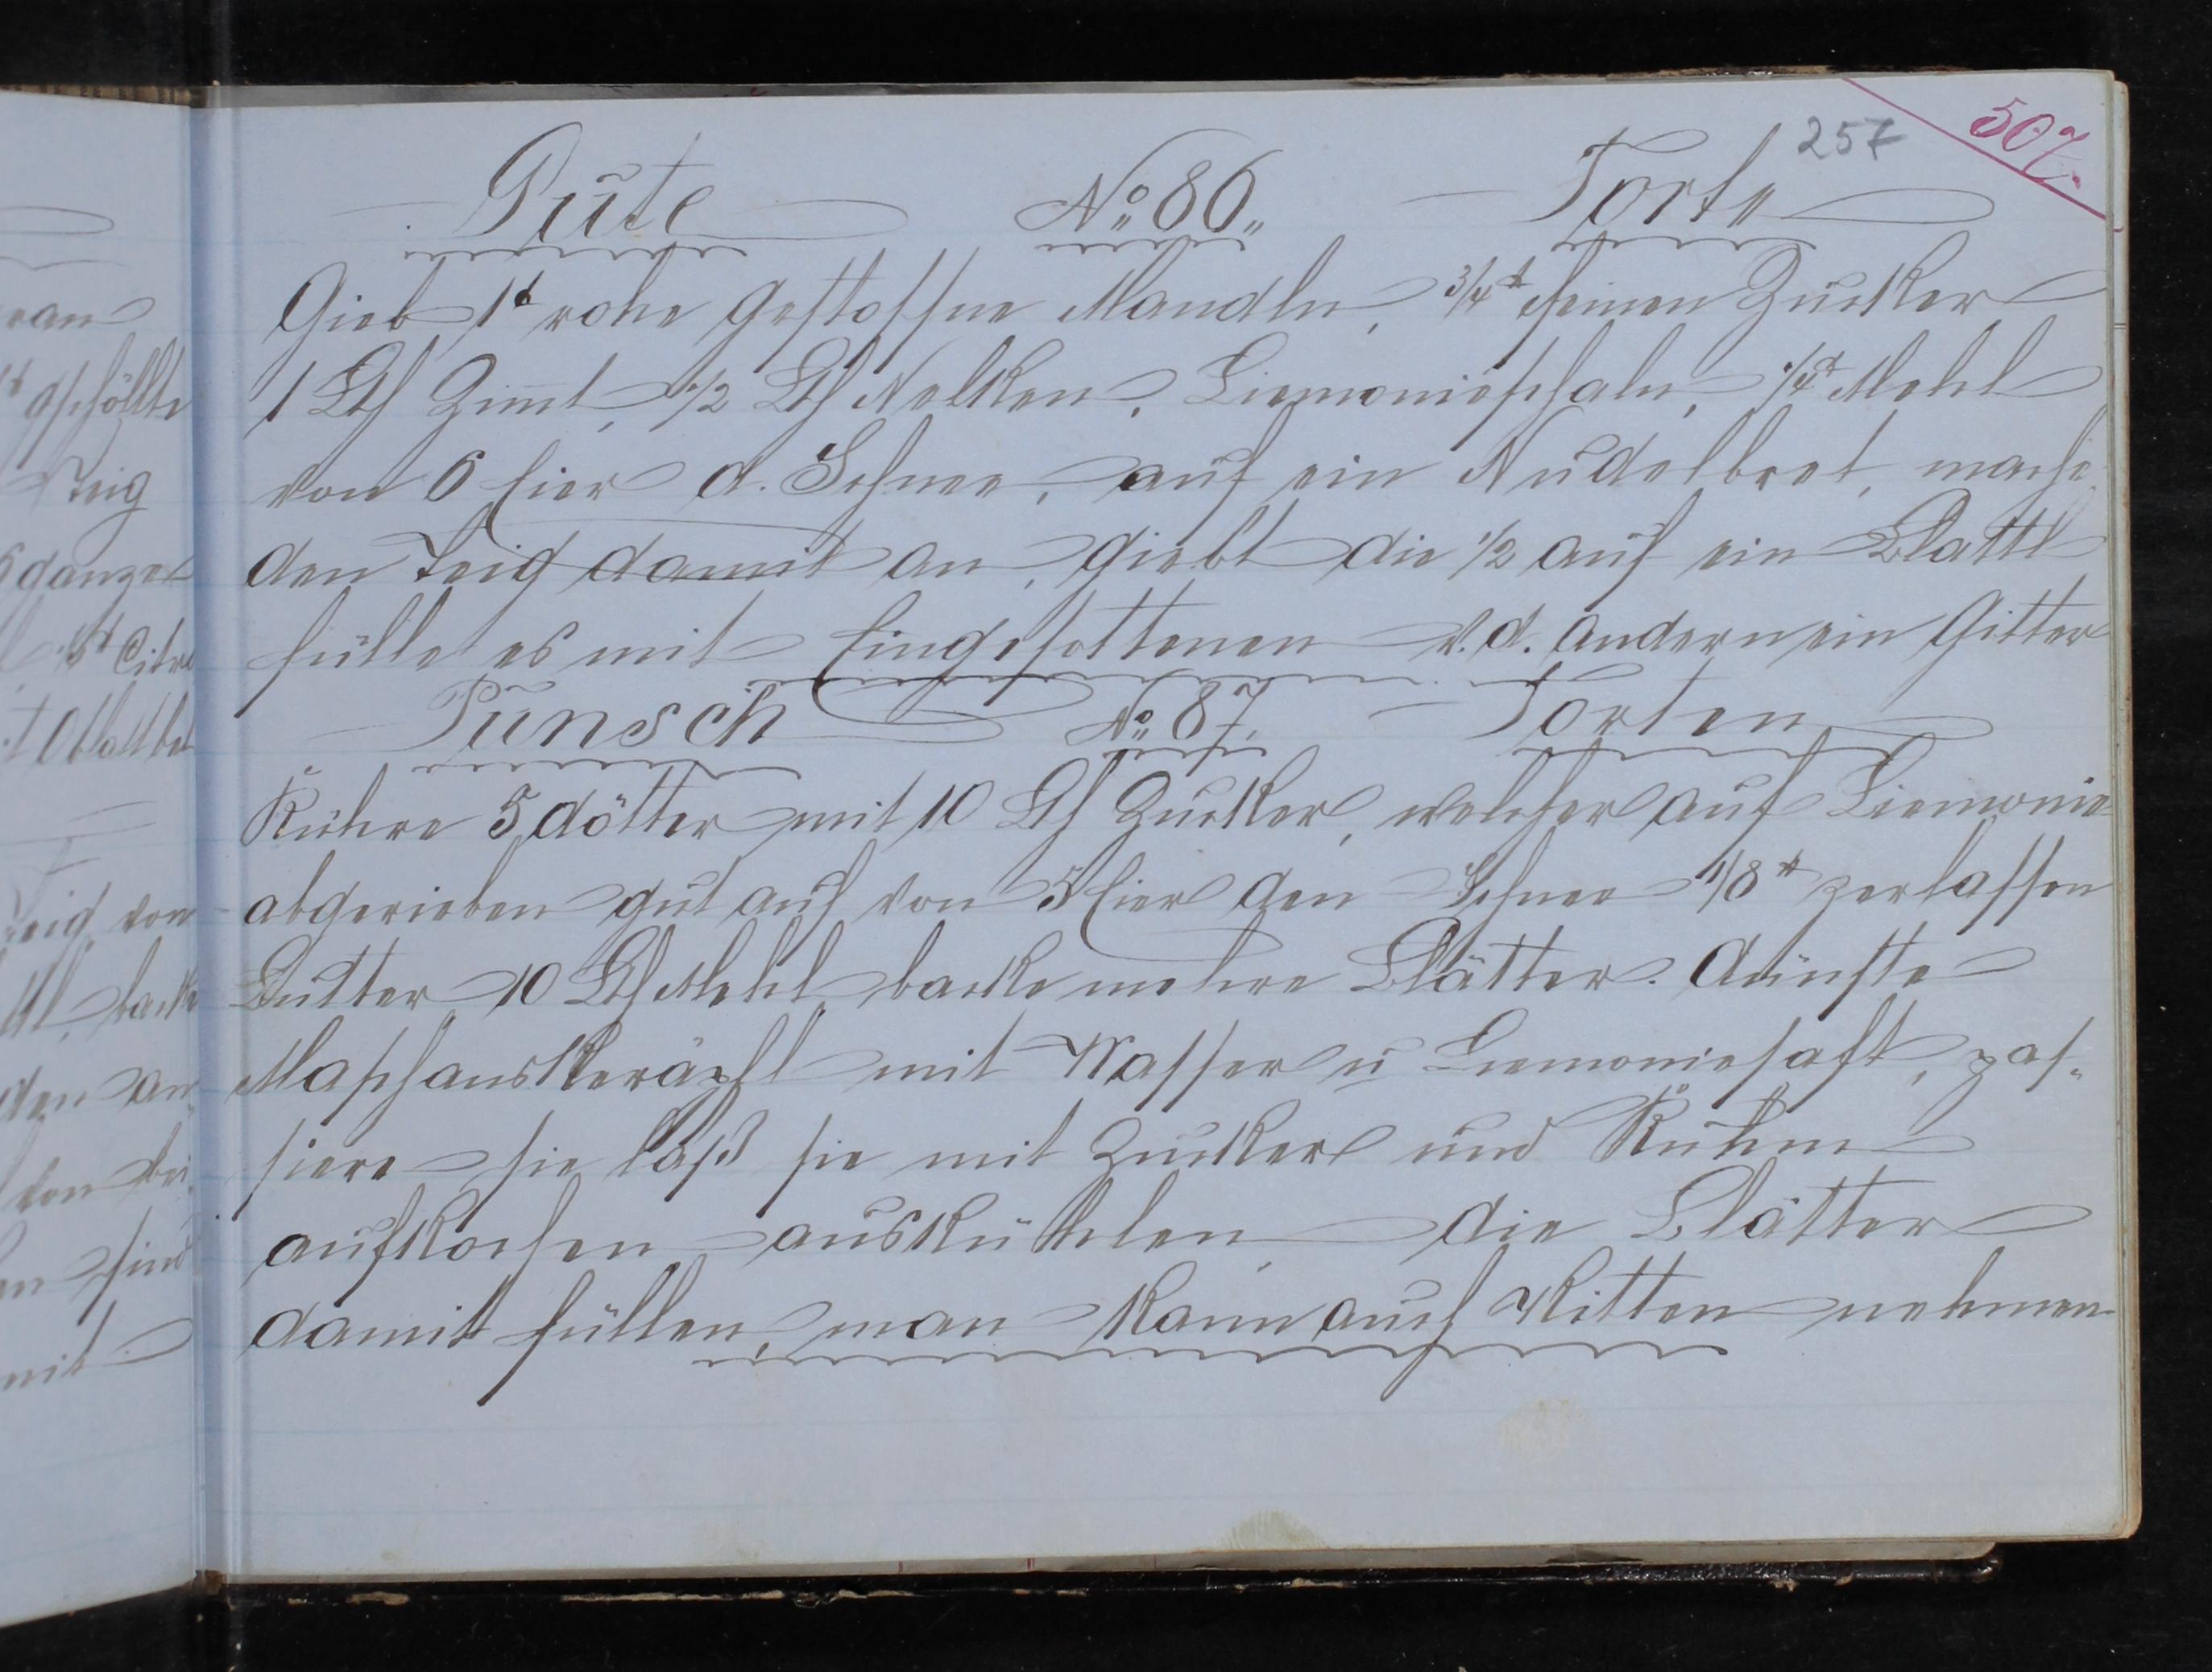 507.
257
Gute No 86 Torte
Gieb 1 ℔ rohe gestossne Mandln, 3/4 ℔ feinen Zucker
1 Lth Zimmt, 1/2 Lth Nelken, Liemonieschaln, 1/4 ℔ Mehl
von 6 Eier d. Schnee, auf ein Nudelbret, mache
den Teig damit an, giebt die 1/2 auf ein Blattl
fülle es mit Eingesottenen v. d. andern ein Gitter
Punsch No 87. Torten
Rühre 5 dötter mit 10 Lth Zucker, welcher auf Liemonie
abgerieben gut auf von 5 Eier den Schnee 1/8 ℔ zerlassen
Butter 10 Lth Mehl backe mehre Blätter. dünste
Maschanskeräpfl mit Wasser u Liemoniesaft, pas-
siere sie laß sie mit Zucker und Ruhm
aufkochen auskühlen, die Blätter
damit füllen, man kann auch Kitten nehmen
ran
℔ gschöllte
Teig
ganze
℔ Citro
Teig von
backe
den an
von
sind
mit